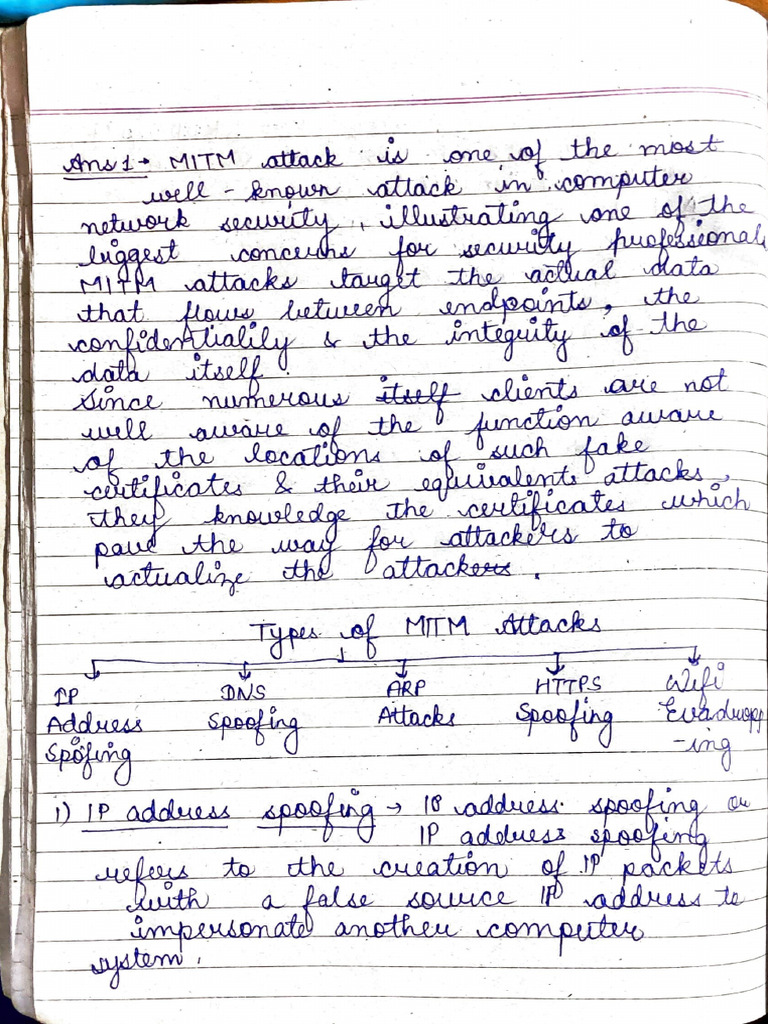 Ans 1 → MITM attack is one of the most
well - known attack in computer
network security, illustrating one of the
biggest concerns for security professionals
MITM attacks target the actual data
that flows between endpoints, the
confidentiality & the integrity of the
data itself.
Since numerous itself clients are not
well aware of the function aware
of the locations of such fake
certificates & their equivalent attacks,
they knowledge the certificates which
pave the way for attackers to
actualize the attackers.
Types of MITM Attacks
IP DNS ARP HTTPS Wifi
Address Spoofing Attacks Spoofing Evadropp
Spofing -ing
i) IP address spoofing → IP address spoofing or
IP address spoofing
refers to the creation of IP packets
with a false source IP address to
impersonate another computer
system.